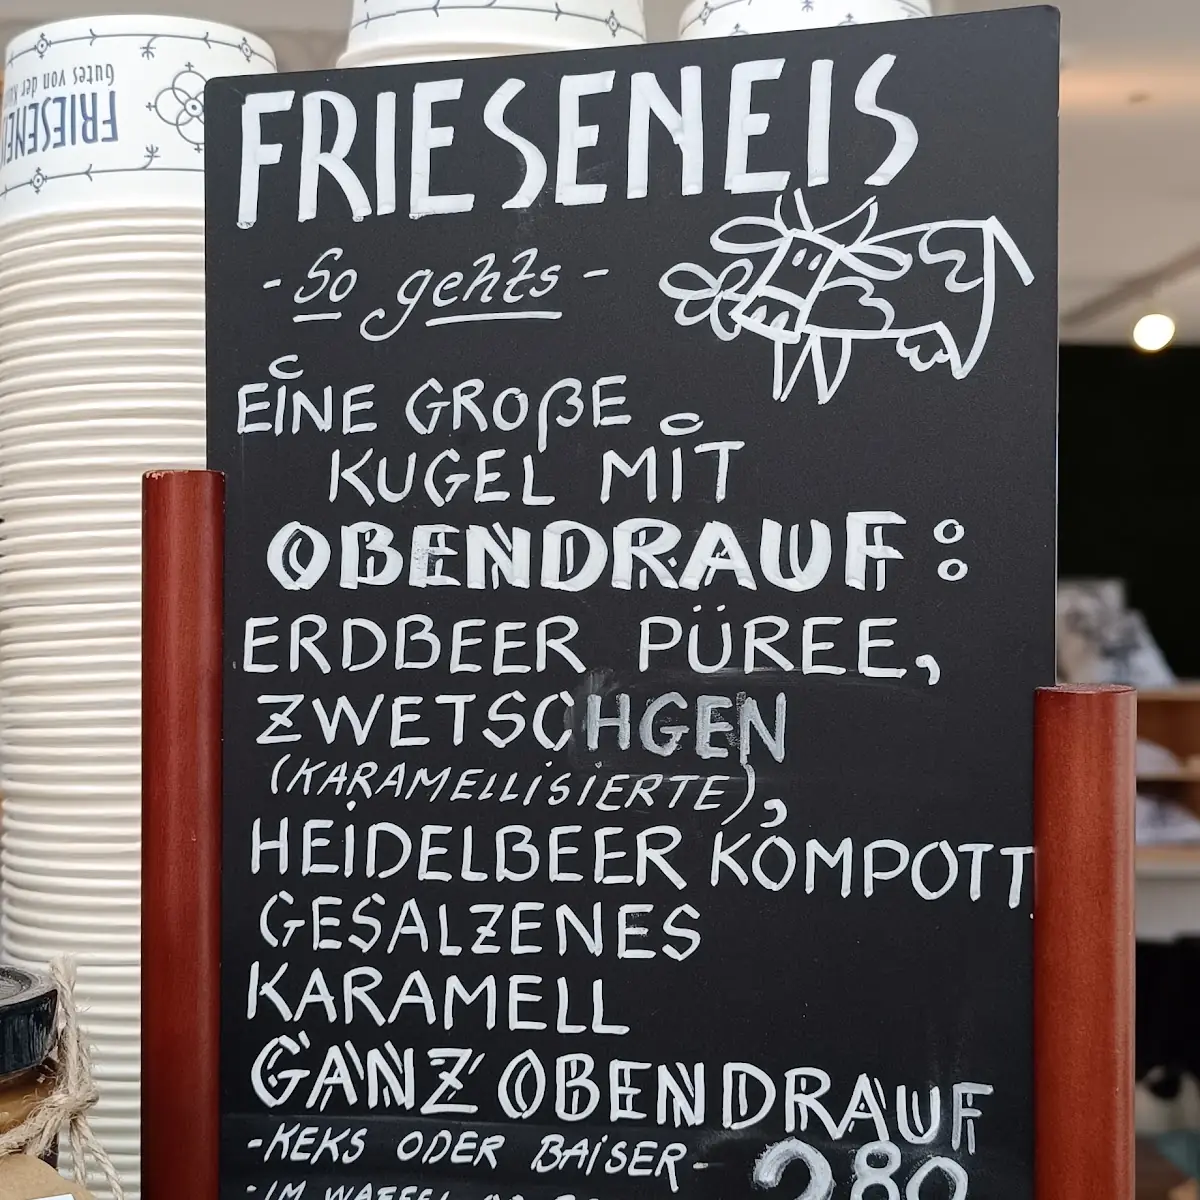 FRIESENEIS
Gutes von der
FRIESENEIS
- So gehts -
EINE GROßE
KUGEL MIT
OBENDRAUF:
ERDBEER PÜREE,
ZWETSCHGEN
(KARAMELLISIERTE),
HEIDELBEER KOMPOTT
GESALZENES
KARAMELL
GANZ OBENDRAUF
-KEKS ODER BAISER-
2,80
-IM WAFFEL